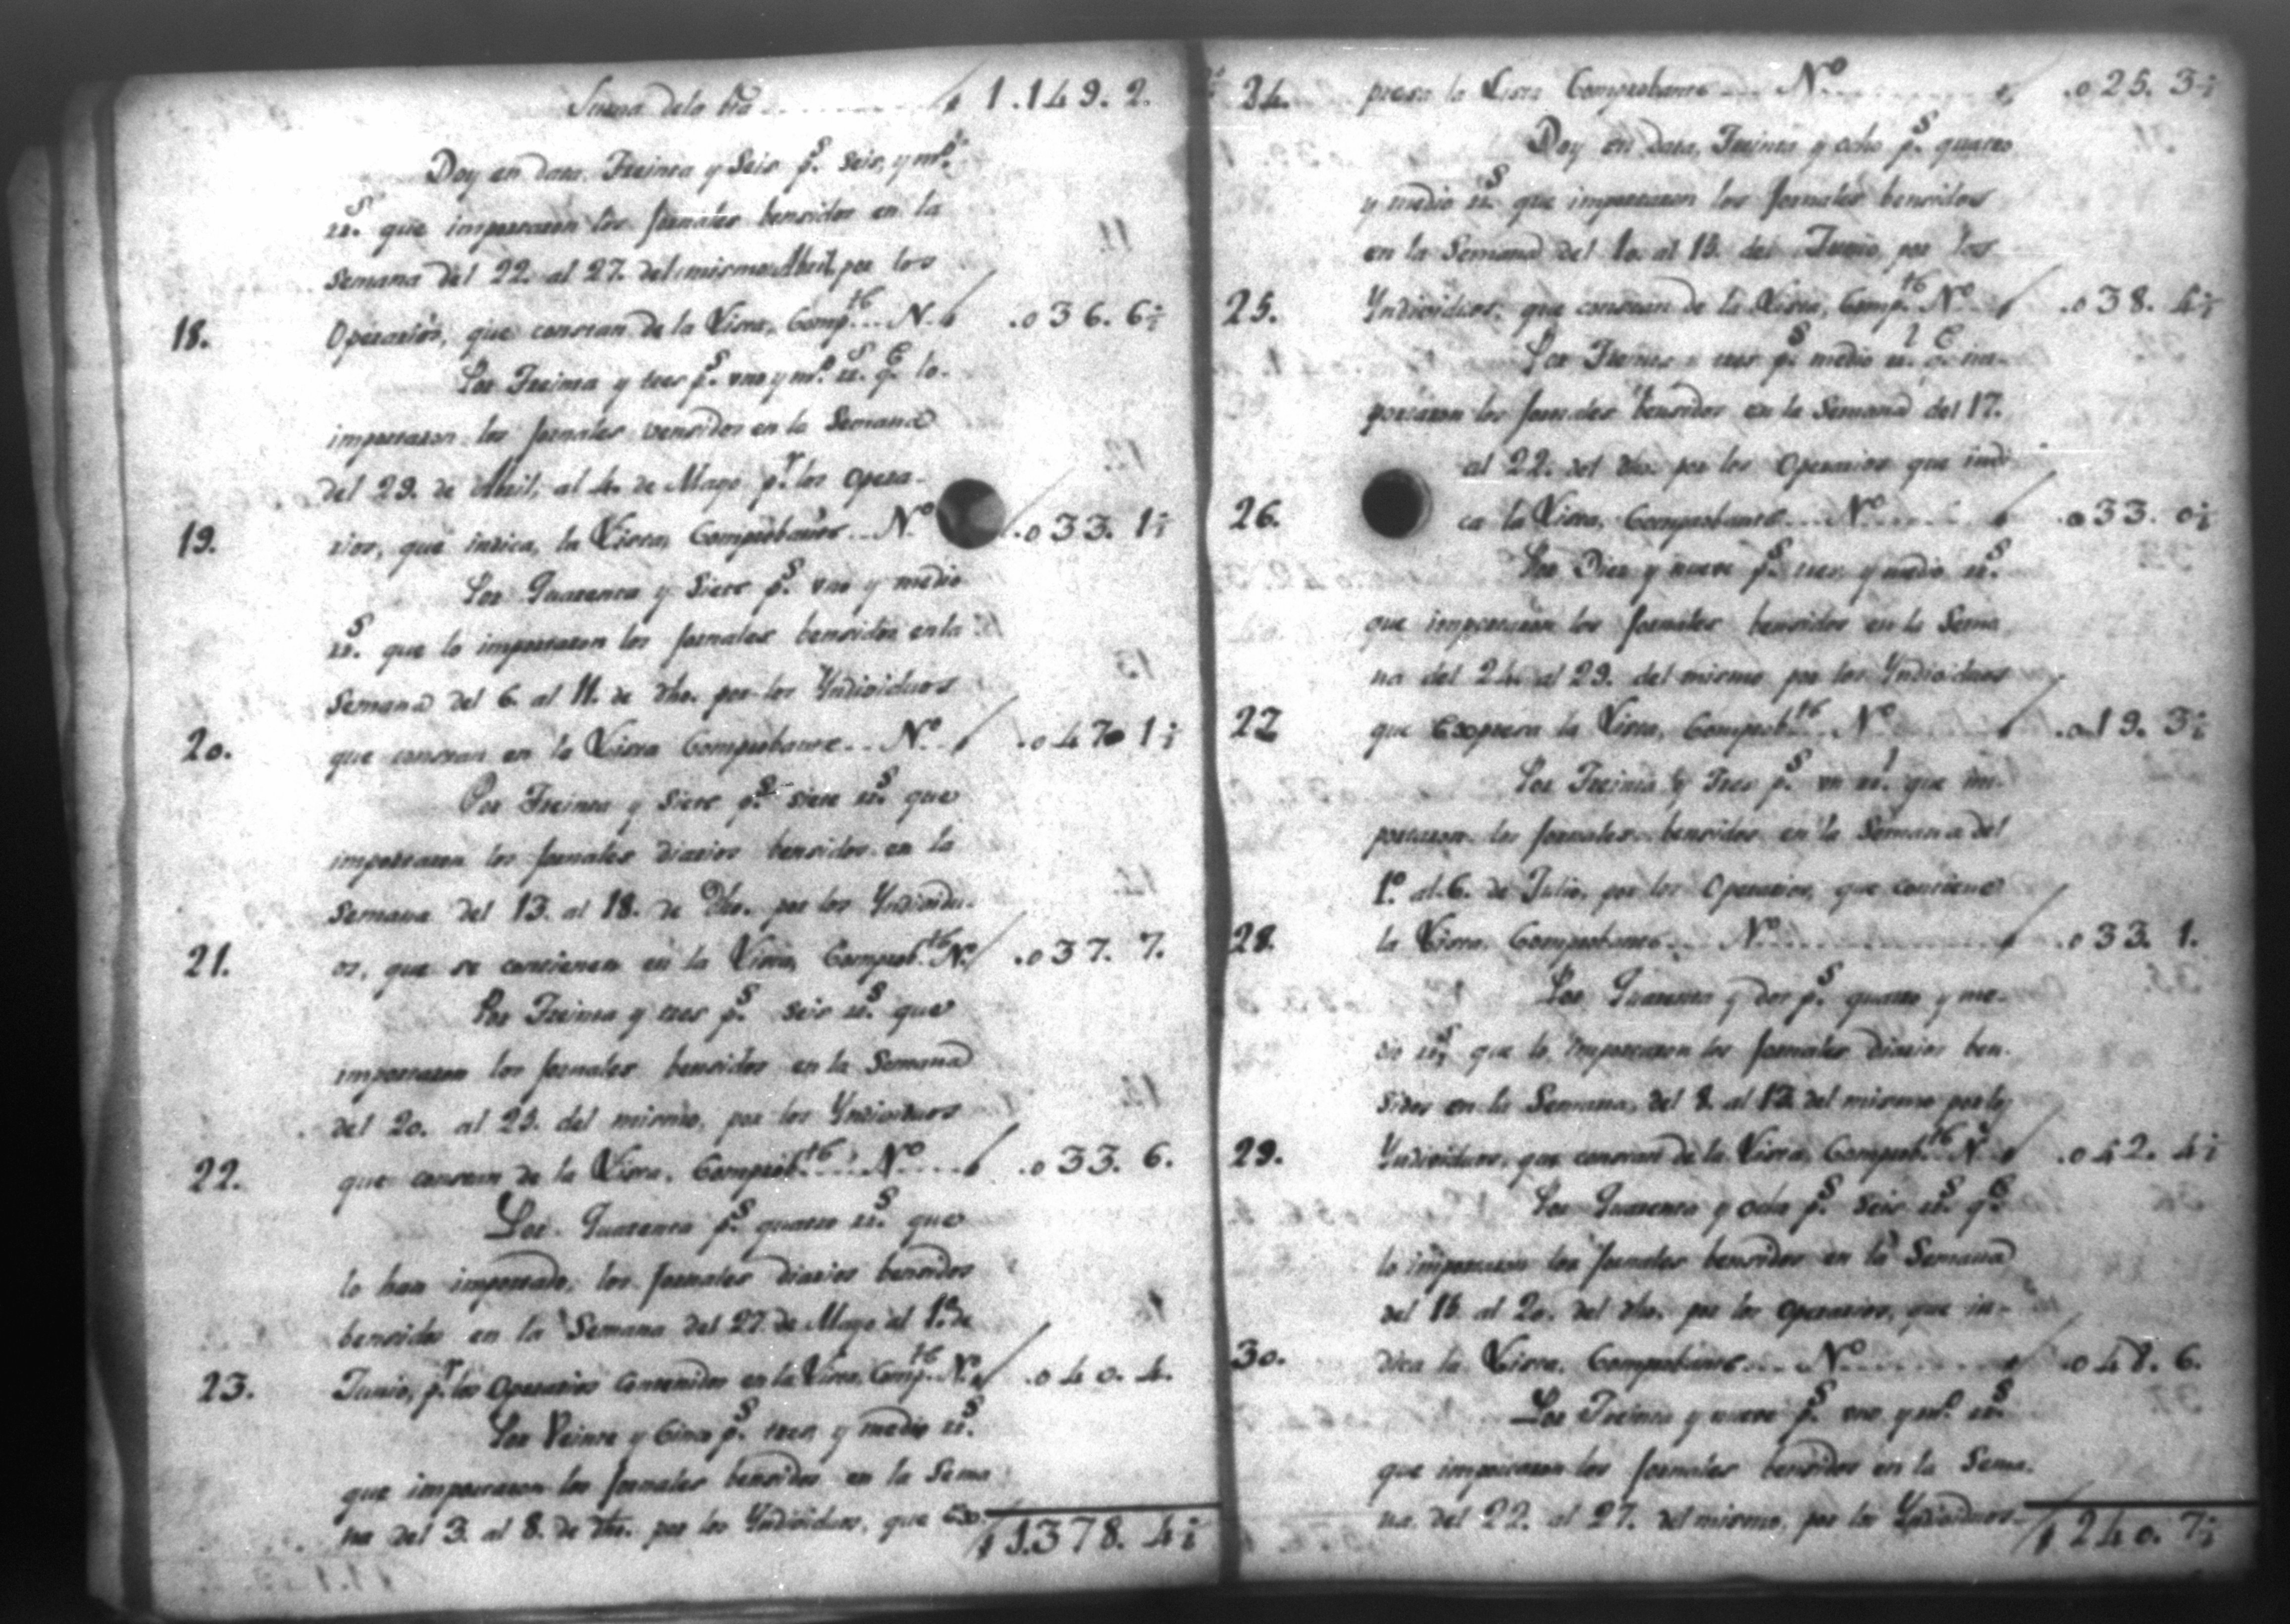 Suma dela bta ........ $ 1.149. 2.
Doy en data, Treinta y Seis p.s seis, y m.o
rr.s que importaron los Jornales bensidos en la
Semana del 22. al 27. del mismo Abril, por los
18. Operarios, que constan de la Lista, Comp.te... N. $ .036. 6½
Por Treinta y tres p.s uno y m.o rr.s q.e lo
importaron los Jornales vensidos en la Semana
del 29. de Abril, al 4. de Mayo p.r los Opera-
19. rios, que indica, la Lista, Comprobante... N.o .033. 1½
Por Quarenta y Siete p.s uno y medio
rr.s que lo importaron los Jornales bensidos en la
Semana del 6. al 11. de dho. por los Yndividuos
20. que constan en la Lista Comprobante... N.o $ .047. 1½
Por Treinta y Siete p.s siete rr.s que
importaron los Jornales diarios bensidos en la
Semana del 13. al 18. de Dho. por los Yndividu-
21. os, que se contienen en la Lista, Comprob.te N.o .037. 7.
Por Treinta y tres p.s seis rr.s que
importaron los Jornales bensidos en la Semana
del 20. al 25. del mismo, por los Yndividuos
22. que constan de la Lista, Comprob.te... N.o .... $ .033. 6.
Por Quarenta p.s quatro rr.s que
lo han importado, los Jornales diarios bensidos
bensidos en la Semana del 27. de Mayo al 1.o de
23. Junio, p.r los Operarios Contenidos en la Lista, Comp.te N.o $ .040. 4.
Por Veinte y Cinco p.s tres, y medio rr.s
que importaron los Jornales bensidos en la Sema
na del 3. al 8. de dho. por los Yndividuos, que Esx-
$ 1.378. 4½
24. presa la Lista Comprobante... N.o ........ $ .025. 3½
Doy en Data, Treinta y ocho p.s quatro
y medio rr.s que importaron los Jornales bensidos
en la Semana del 10. al 15. de Junio, por los
25. Yndividuos, que constan de la Lista, Comp.te N.o $ .038. 4½
Por Treinta y tres p.s medio rr.l q.e im-
portaron los Jornales bensidos en la Semana del 17.
al 22. del dho. por los Operarios que indi
26. ca la Lista, Comprobante... N.o ...... $ .033. 0½
Por Diez y nueve p.s tres, y medio rr.s
que importaron los Jornales bensidos en la Sema
na del 24. al 29. del mismo por los Yndividuos
27 que Esxpresa la Lista, Comprob.te N.o $ .019. 3½
Por Treinta y Tres p.s un rr.l que im-
portaron los Jornales bensidos en la Semana del
1.o al 6. de Julio, por los Operarios, que contiene
28. la Lista, Comprobante... N.o .......... $ .033. 1.
Por Quarenta y dos p.s quatro y me-
dio rr.s que lo importaron los Jornales diarios ben-
sidos en la Semana, del 8. al 13. del mismo por los
29. Yndividuos, que constan de la Lista, Comprob.te N.o $ .042. 4½
Por Quarenta y ocho p.s seis rr.s q.e
lo importaron los Jornales bensidos en la Semana
del 15. al 20. del dho. por los Operarios, que in-
30. dica la Lista, Comprobante... N.o ......... $ .048. 6.
Por Treinta y nueve p.s uno y m.o rr.s
que importaron los Jornales bensidos en la Sema-
na. del 22. al 27. del mismo, por los Yndividuos-
$ 240. 7½